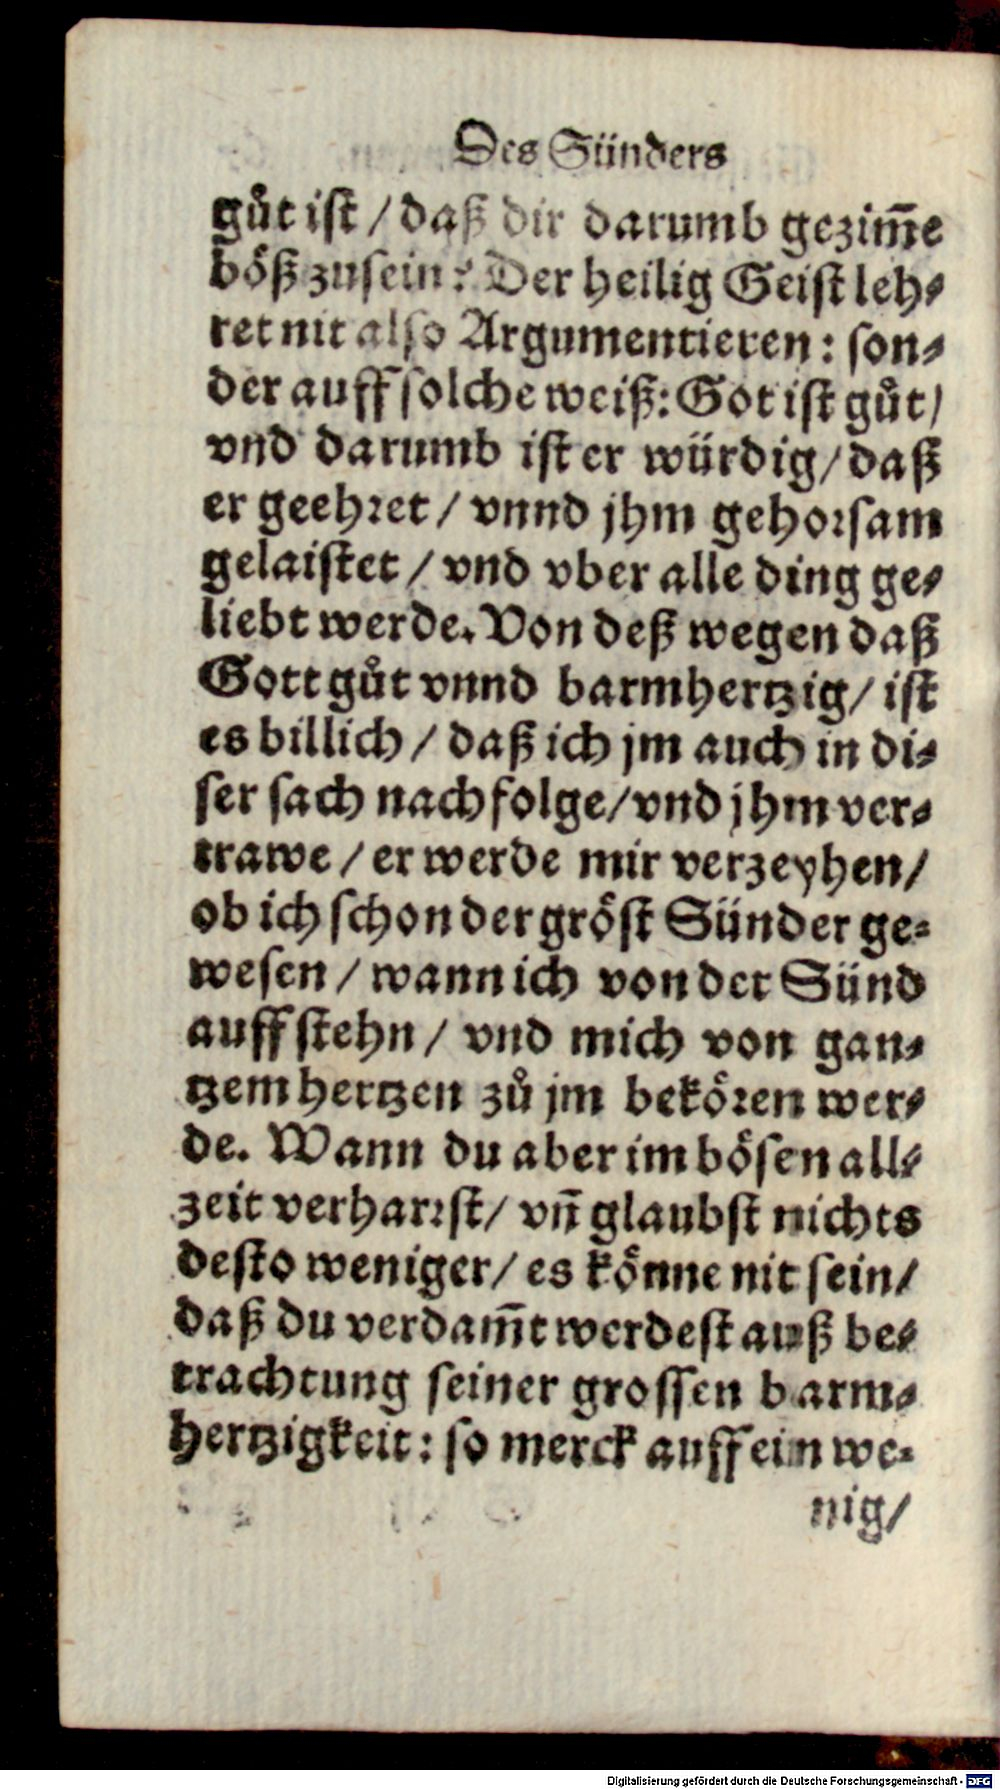 Des Sünders
gůt ist / daß dir darumb gezim̃e
böß zusein? Der heilig Geist leh⸗
ret nit also Argumentieren: son⸗
der auff solche weiß: Got ist gůt/
vnd darumb ist er würdig / daß
er geehret / vnnd jhm gehorsam
gelaistet / vnd vber alle ding ge⸗
liebt werde. Von deß wegen daß
Gott gůt vnnd barmhertzig / ist
es billich / daß ich jm auch in di⸗
ser sach nachfolge / vnd jhm ver⸗
trawe / er werde mir verzeyhen /
ob ich schon der gröst Sünder ge⸗
wesen / wann ich von der Sünd
auffstehn / vnd mich von gan⸗
tzem hertzen zů jm bekören wer⸗
de. Wann du aber im bösen all⸗
zeit verharrst / vñ glaubst nichts
desto weniger / es könne nit sein /
daß du verdam̃t werdest auß be⸗
trachtung seiner grossen barm⸗
hertzigkeit: so merck auff ein we⸗
nig /
Digitalisierung gefördert durch die Deutsche Forschungsgemeinschaft - DFG